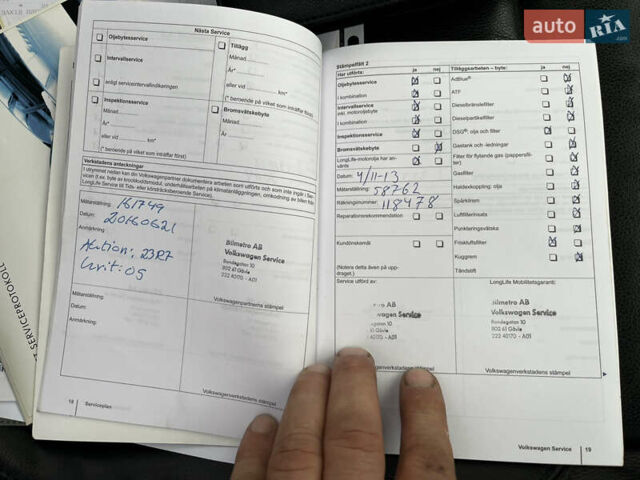 auto RIA.com
Nästa Service
Oljebytesservice
Tillägg
Månad
År*
Intervallservice
eller vid km*
enligt serviceintervallindikeringen
(* beroende på vilket som inträffar först)
Inspektionsservice
Bromsvätskebyte
Månad
Månad
År*
År
eller vid km*
(* beroende på vilket som inträffar först)
Verkstadens anteckningar
I utrymmet nedan kan din Volkswagenpartner dokumentera arbeten som utförts och som inte ingår i
Mätarställning: 161749
Datum: 20160621
Anmärkning:
Aktion: 23R7
Bilmetro AB
Volkswagen Service
Rondegatan 10
802 61 Gävle
222 40170 - A01
Mätarställning:
Volkswagenpartnerns stämpel
Datum:
Anmärkning:
Volkswagenverkstadens stämpel
18 Serviceplan
Stämpelfält 2
Har utförts: ja nej
Oljebytesservice
i kombination
Intervallservice
inkl. motoroljebyte
i kombination
Inspektionsservice
Bromsvätskebyte
LongLife-motorolja har använts
Datum: 4/11-13
Mätarställning: 58762
Räkningsnummer: 118478
Reparationsrekommendation
Kundönskemål
(Notera detta även på uppdraget.)
Tilläggsarbeten – byte: ja nej
AdBlue®
ATF
Dieselbränslefilter
Dieselpartikelfilter
DSG®, olja och filter
Gastank och -ledningar
Filter för flytande gas (pappersfilter)
Gasfilter
Haldexkoppling: olja
Spårkinem
Luftfilterinsats
Punkteringsvätska
Friskluftsfilter
Kuggrem
Tändstift
Service utförd av:
LongLife Mobilitetsgaranti:
ro AB
wagen Service
gatan 10
Gävle
40170 - A01
Bilmetro AB
Volkswagen Service
Rondegatan 10
802 61 Gävle
222 40170 - A01
Volkswagenverkstadens stämpel
Volkswagenverkstadens stämpel
Volkswagen Service 19
SERVICEPROTOKOLL